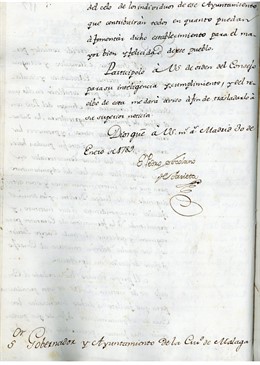 del celo de los individuos de ese Ayuntamiento
que contribuirán celos en quanto puedan
á fomentar dicho establecimiento para el ma
yor bien y felicidad de ese pueblo.
Participolo à VS. de orden del Consejo
para su inteligencia y cumplimiento, y del re
cibo de esta me dará aviso à fin de trasladarlo à
su superior noticia
Dios gue à VS. ms. as. Madrid 30 de
Enero de 1789.
de Arrieta
Sor. Gobernador y Ayuntamiento de la Ciud. de Malaga